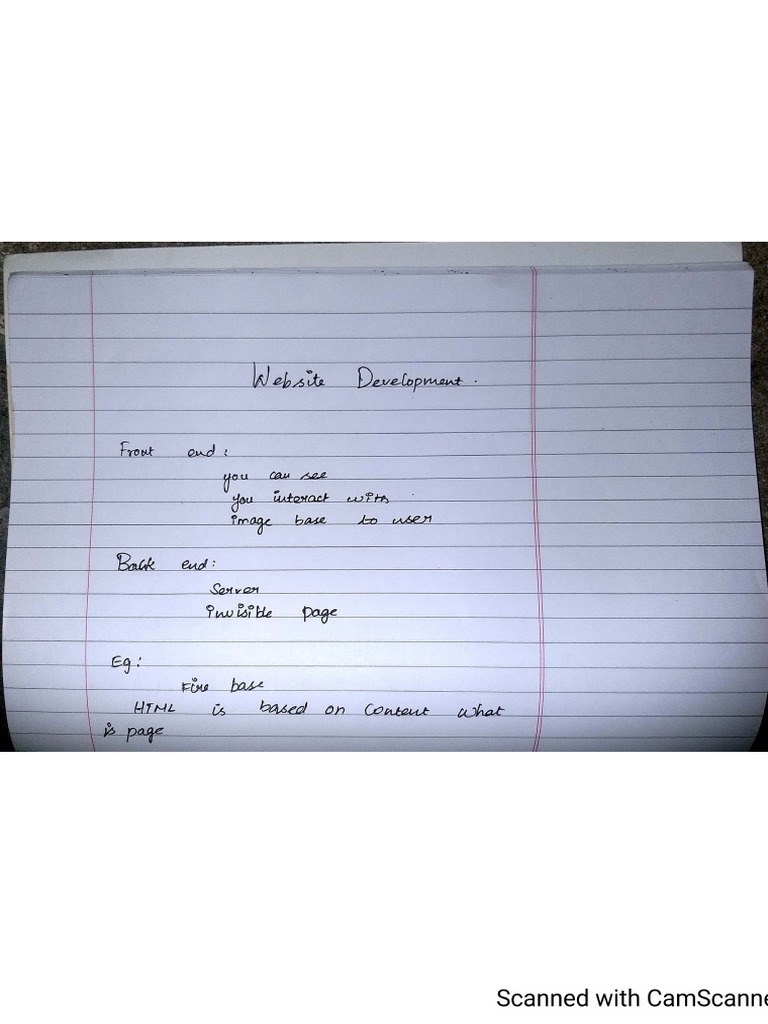 Website Development.
Front end:
you can see
you interact with
image base to user
Back end:
Server
invisible page
Eg:
Fire base
HTML is based on content what
is page
Scanned with CamScanne